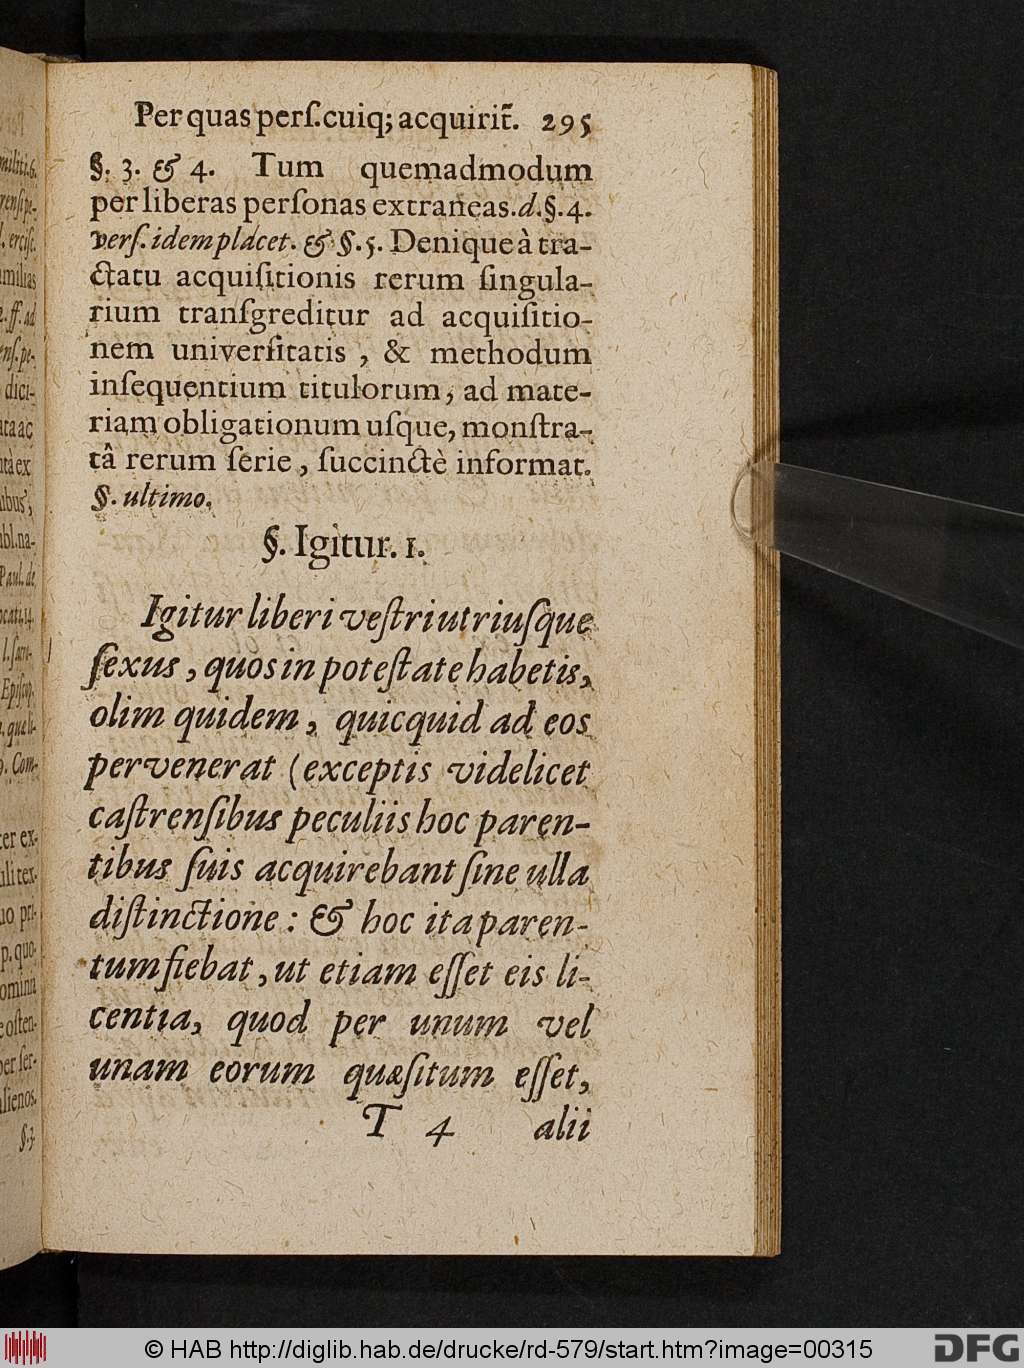 Per quas perſ.cuiq; acquirit̃. 295
§. 3. & 4. Tum quemadmodum
per liberas perſonas extraneas. d. §. 4.
verſ. idem placet. & §. 5. Denique à tra-
ctatu acquiſitionis rerum ſingula-
rium tranſgreditur ad acquiſitio-
nem univerſitatis, & methodum
inſequentium titulorum, ad mate-
riam obligationum uſque, monſtra-
tâ rerum ſerie, ſuccinctè informat.
§. ultimo.
§. Igitur. 1.
Igitur liberi veſtri utriuſque
ſexus, quos in poteſtate habetis,
olim quidem, quicquid ad eos
pervenerat (exceptis videlicet
caſtrenſibus peculiis hoc paren-
tibus ſuis acquirebant ſine ulla
diſtinctione: & hoc ita paren-
tum fiebat, ut etiam eſſet eis li-
centia, quod per unum vel
unam eorum quæſitum eſſet,
T 4 alii
militi. 6.
milias
ff. ad
dici-
ta ac
tà ex
ibus,
bl. na-
Paul. de
Epiſcop.
Com-
ter ex-
uli tex-
uo pri-
p. quo
omini
e oſten-
per ſer-
alienos.
§. 3.
© HAB http://diglib.hab.de/drucke/rd-579/start.htm?image=00315
DFG